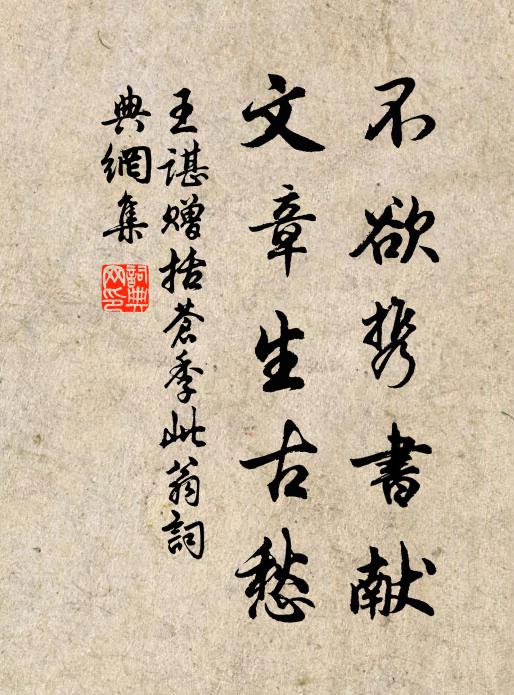 不欲携書献
文章生古愁
王諶赠括苍季此翁詞
典網集
詞典
网印